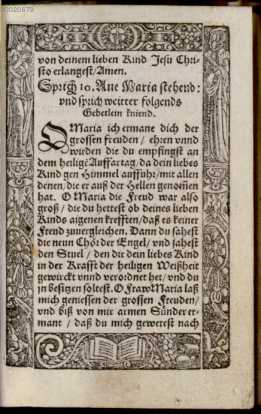 0020679
von deinem lieben Kind Jesu Chri-
sto erlangest/Amen.
Sprich 10. Aue Maria stehend:
vnd sprich weitter folgends
Gebetlein kniend.
O Maria ich ermane dich der
grossen freuden / ehren vnnd
wirden die du empfingst an
dem heilige Auffartag/ da dein liebes
Kind gen Himmel auffuhr/mit allen
denen/die er auß der Hellen genom̃en
hat. O Maria die Freud war also
groß / die du hettest ob deines lieben
Kinds aignen krefften/daß es keiner
Freud zuuergleichen. Dann du sahest
die neun Chör der Engel/ vnd sahest
den Stuel / den dir dein liebes Kind
in der Krafft der heiligen Weißheit
gewürckt vnnd verordnet het/ vnd du
jn besitzen soltest. O Fraw Maria laß
mich geniessen der grossen Freuden/
vnd biß von mir armen Sünder er-
mant / daß du mich gewerest nach